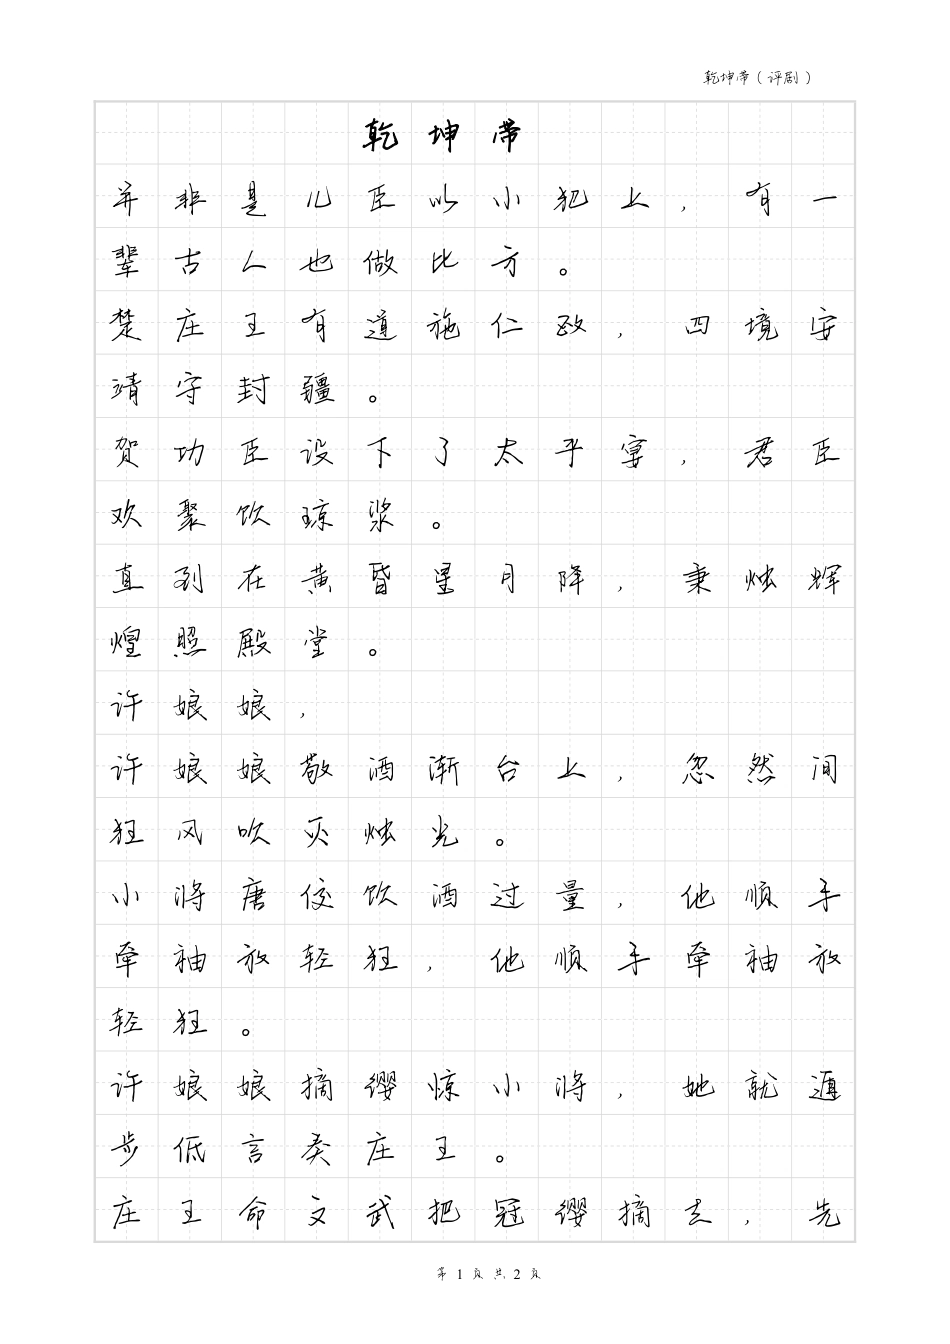 乾坤带（评剧）
乾坤带
并非是儿臣以小犯上，有一
辈古人也做比方。
楚庄王有道施仁政，四境安
靖守封疆。
贺功臣设下了太平宴，君臣
欢聚饮琼浆。
直到在黄昏星月降，秉烛辉
煌照殿堂。
许娘娘，
许娘娘敬酒渐台上，忽然间
狂风吹灭烛光。
小将唐佼饮酒过量，他顺手
牵袖放轻狂，他顺手牵袖放
轻狂。
许娘娘摘缨惊小将，她就通
步低言奏庄王。
庄王命文武把冠缨摘去，先
第 1 页 共 2 页